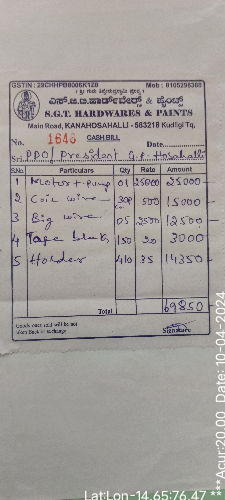 GSTIN : 29CHHPB8006K1Z8 Mob : 8105298368
ಎಸ್.ಜಿ.ಟಿ.ಹಾರ್ಡ್‌ವೇರ್ಸ್ & ಪೈಂಟ್ಸ್
S.G.T. HARDWARES & PAINTS
Main Road, KANAHOSAHALLI - 583218 Kudligi Tq,
No. 1646 CASH BILL Date
Sri PDO/ President G.P. Hosahalli
S.No. Particulars Qty Rate Amount
1 Motor + Pump 01 25000 25000
2 Coil wire 30P 500 15000
3 Big wire 05 2500 12500
4 Tape 150 20 3000
5 Holder 410 35 14350
Total 69850
Goods once sold will be not
taken Back or exchange
Signature
Lat:Lon-14.65:76.47
***Acur:20.00 Date: 10-04-2024